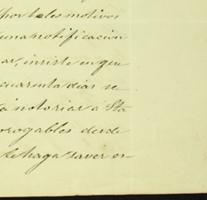 por tales motivos
una notificación
ar, insiste en que
cuarenta dias se
á notoriar á Sta
orogables desde
le haga saver en